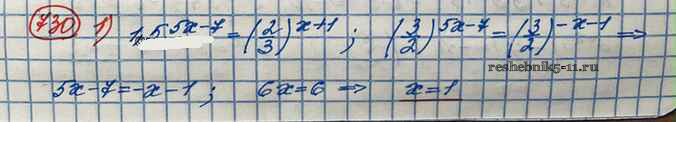 730 1) 1,5^(5x-7) = (2/3)^(x+1) ; (3/2)^(5x-7) = (3/2)^(-x-1) ⇒
reshebnik5-11.ru
5x-7=-x-1 ; 6x=6 ⇒ x=1